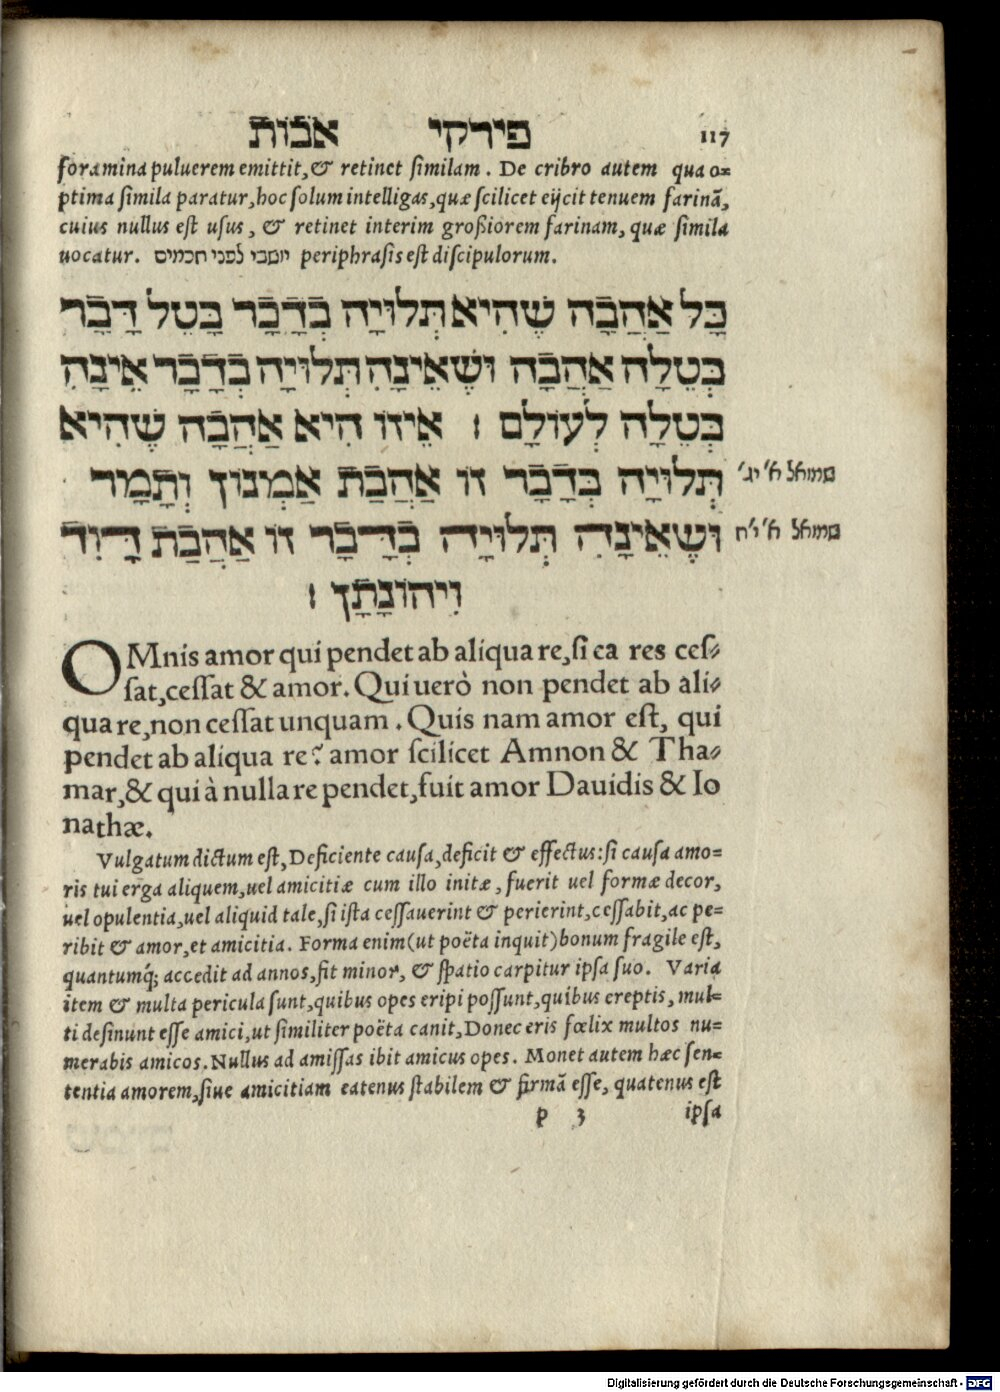 פירקי אבות 117
foramina puluerem emittit, & retinet similam. De cribro autem qua o=
ptima simila paratur, hoc solum intelligas, quæ scilicet eijcit tenuem farinã,
cuius nullus est usus, & retinet interim großiorem farinam, quæ simila
uocatur. יושבי לפני חכמים periphrasis est discipulorum.
כָּל אַהֲבָה שֶׁהִיא תְּלוּיָה בְּדָבָר בָּטֵל דָּבָר
בְּטֵלָה אַהֲבָה וְשֶׁאֵינָהּ תְּלוּיָה בְּדָבָר אֵינָהּ
בְּטֵלָה לְעוֹלָם : אֵיזוֹ הִיא אַהֲבָה שֶׁהִיא
תְּלוּיָה בְּדָבָר זוֹ אַהֲבַת אַמְנוֹן וְתָמָר שמואל א' יג'
וְשֶׁאֵינָהּ תְּלוּיָה בְּדָבָר זוֹ אַהֲבַת דָּוִד שמואל א' י'ח
וִיהוֹנָתָן :
OMnis amor qui pendet ab aliqua re, si ea res ces=
sat, cessat & amor. Qui uerò non pendet ab ali=
qua re, non cessat unquam. Quis nam amor est, qui
pendet ab aliqua re? amor scilicet Amnon & Tha=
mar, & qui à nulla re pendet, fuit amor Dauidis & Io
nathæ.
Vulgatum dictum est, Deficiente causa, deficit & effectus: si causa amo=
ris tui erga aliquem, uel amicitiæ cum illo initæ, fuerit uel formæ decor,
uel opulentia, uel aliquid tale, si ista cessauerint & perierint, cessabit, ac pe=
ribit & amor, et amicitia. Forma enim (ut poëta inquit) bonum fragile est,
quantumq; accedit ad annos, fit minor, & spatio carpitur ipsa suo. Varia
item & multa pericula sunt, quibus opes eripi possunt, quibus ereptis, mul=
ti desinunt esse amici, ut similiter poëta canit, Donec eris fœlix multos nu=
merabis amicos. Nullus ad amissas ibit amicus opes. Monet autem hæc sen=
tentia amorem, siue amicitiam eatenus stabilem & firmã esse, quatenus est
p 3 ipsa
Digitalisierung gefördert durch die Deutsche Forschungsgemeinschaft - DFG